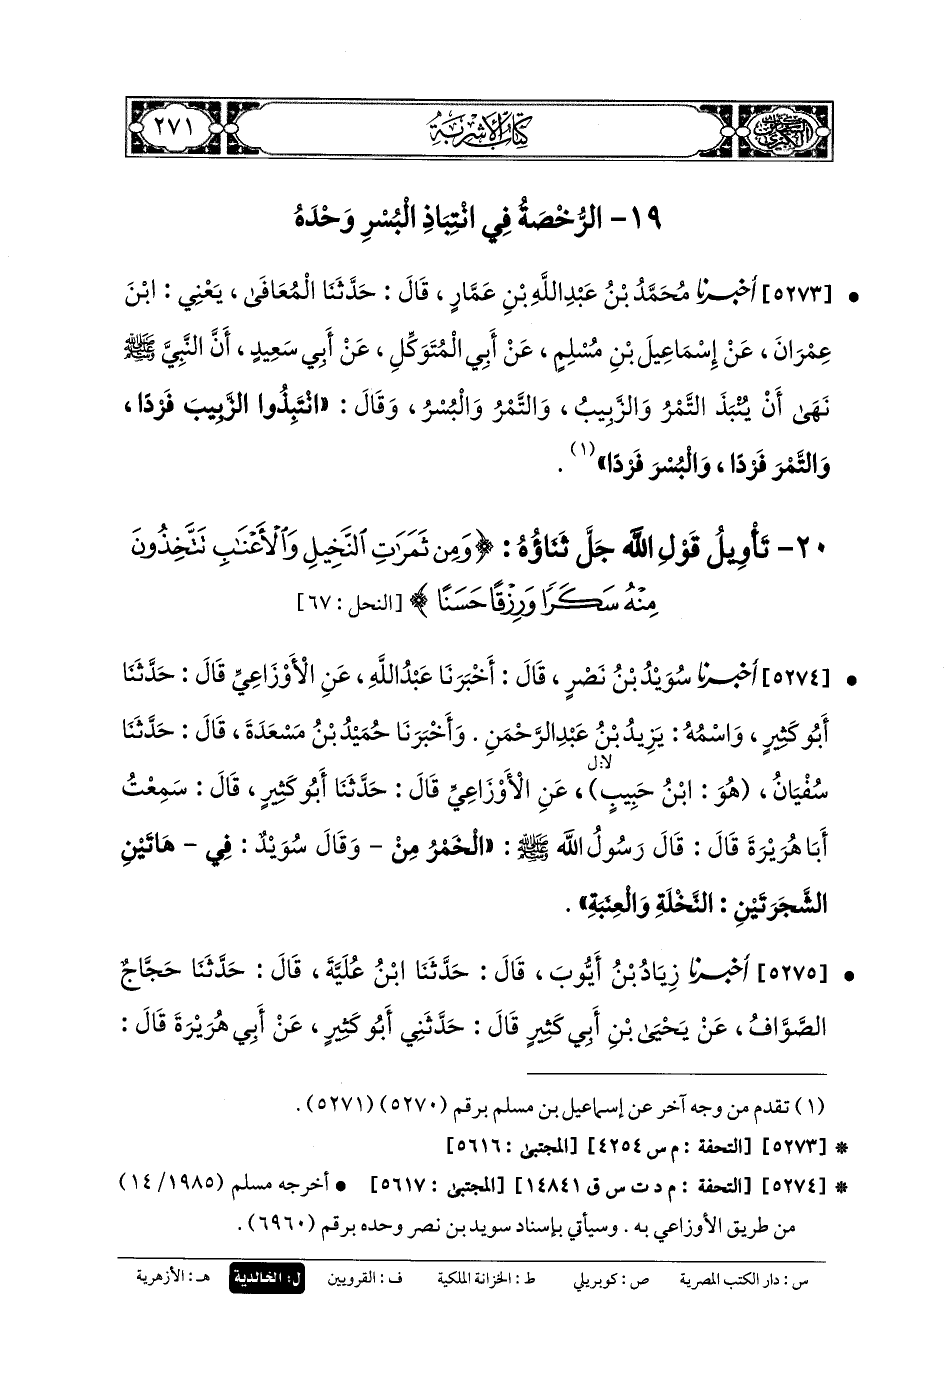 كتاب الأشربة
٢٧١
١٩- الرُّخْصَةُ فِي انْتِبَاذِ الْبُسْرِ وَحْدَهُ
• [٥٢٧٣] أخبرنا مُحَمَّدُ بْنُ عَبْدِاللَّهِ بْنِ عَمَّارٍ، قَالَ: حَدَّثَنَا الْمُعَافَى، يَعْنِي: ابْنَ
عِمْرَانَ، عَنْ إِسْمَاعِيلَ بْنِ مُسْلِمٍ، عَنْ أَبِي الْمُتَوَكِّلِ، عَنْ أَبِي سَعِيدٍ، أَنَّ النَّبِيَّ ﷺ
نَهَى أَنْ يُنْبَذَ التَّمْرُ وَالزَّبِيبُ، وَالتَّمْرُ وَالْبُسْرُ، وَقَالَ: «انْتَبِذُوا الزَّبِيبَ فَرْدًا،
وَالتَّمْرَ فَرْدًا، وَالْبُسْرَ فَرْدًا»(١).
٢٠- تَأْوِيلُ قَوْلِ اللَّهِ جَلَّ ثَنَاؤُهُ: ﴿وَمِن ثَمَرَٰتِ ٱلنَّخِيلِ وَٱلْأَعْنَٰبِ تَتَّخِذُونَ
مِنْهُ سَكَرًا وَرِزْقًا حَسَنًا﴾ [النحل: ٦٧]
• [٥٢٧٤] أخبرنا سُوَيْدُ بْنُ نَصْرٍ، قَالَ: أَخْبَرَنَا عَبْدُاللَّهِ، عَنِ الْأَوْزَاعِيِّ قَالَ: حَدَّثَنَا
أَبُو كَثِيرٍ، وَاسْمُهُ: يَزِيدُ بْنُ عَبْدِالرَّحْمَنِ. وَأَخْبَرَنَا حُمَيْدُ بْنُ مَسْعَدَةَ، قَالَ: حَدَّثَنَا
سُفْيَانُ، (هُوَ: ابْنُ حَبِيبٍ)، عَنِ الْأَوْزَاعِيِّ قَالَ: حَدَّثَنَا أَبُو كَثِيرٍ، قَالَ: سَمِعْتُ
أَبَا هُرَيْرَةَ قَالَ: قَالَ رَسُولُ اللَّهِ ﷺ: «الْخَمْرُ مِنْ - وَقَالَ سُوَيْدٌ: فِي - هَاتَيْنِ
الشَّجَرَتَيْنِ: النَّخْلَةِ وَالْعِنَبَةِ».
• [٥٢٧٥] أخبرنا زِيَادُ بْنُ أَيُّوبَ، قَالَ: حَدَّثَنَا ابْنُ عُلَيَّةَ، قَالَ: حَدَّثَنَا حَجَّاجٌ
الصَّوَّافُ، عَنْ يَحْيَى بْنِ أَبِي كَثِيرٍ قَالَ: حَدَّثَنِي أَبُو كَثِيرٍ، عَنْ أَبِي هُرَيْرَةَ قَالَ:
(١) تقدم من وجه آخر عن إسماعيل بن مسلم برقم (٥٢٧٠) (٥٢٧١).
* [٥٢٧٣] [التحفة: م س ٤٢٥٤] [المجتبى: ٥٦١٦]
* [٥٢٧٤] [التحفة: م د ت س ق ١٤٨٤١] [المجتبى: ٥٦١٧] • أخرجه مسلم (١٤/١٩٨٥)
من طريق الأوزاعي به. وسيأتي بإسناد سويد بن نصر وحده برقم (٦٩٦٠).
س: دار الكتب المصرية ص: كوبريلي ط: الخزانة الملكية ف: القرويين ل: الخالدية هـ: الأزهرية